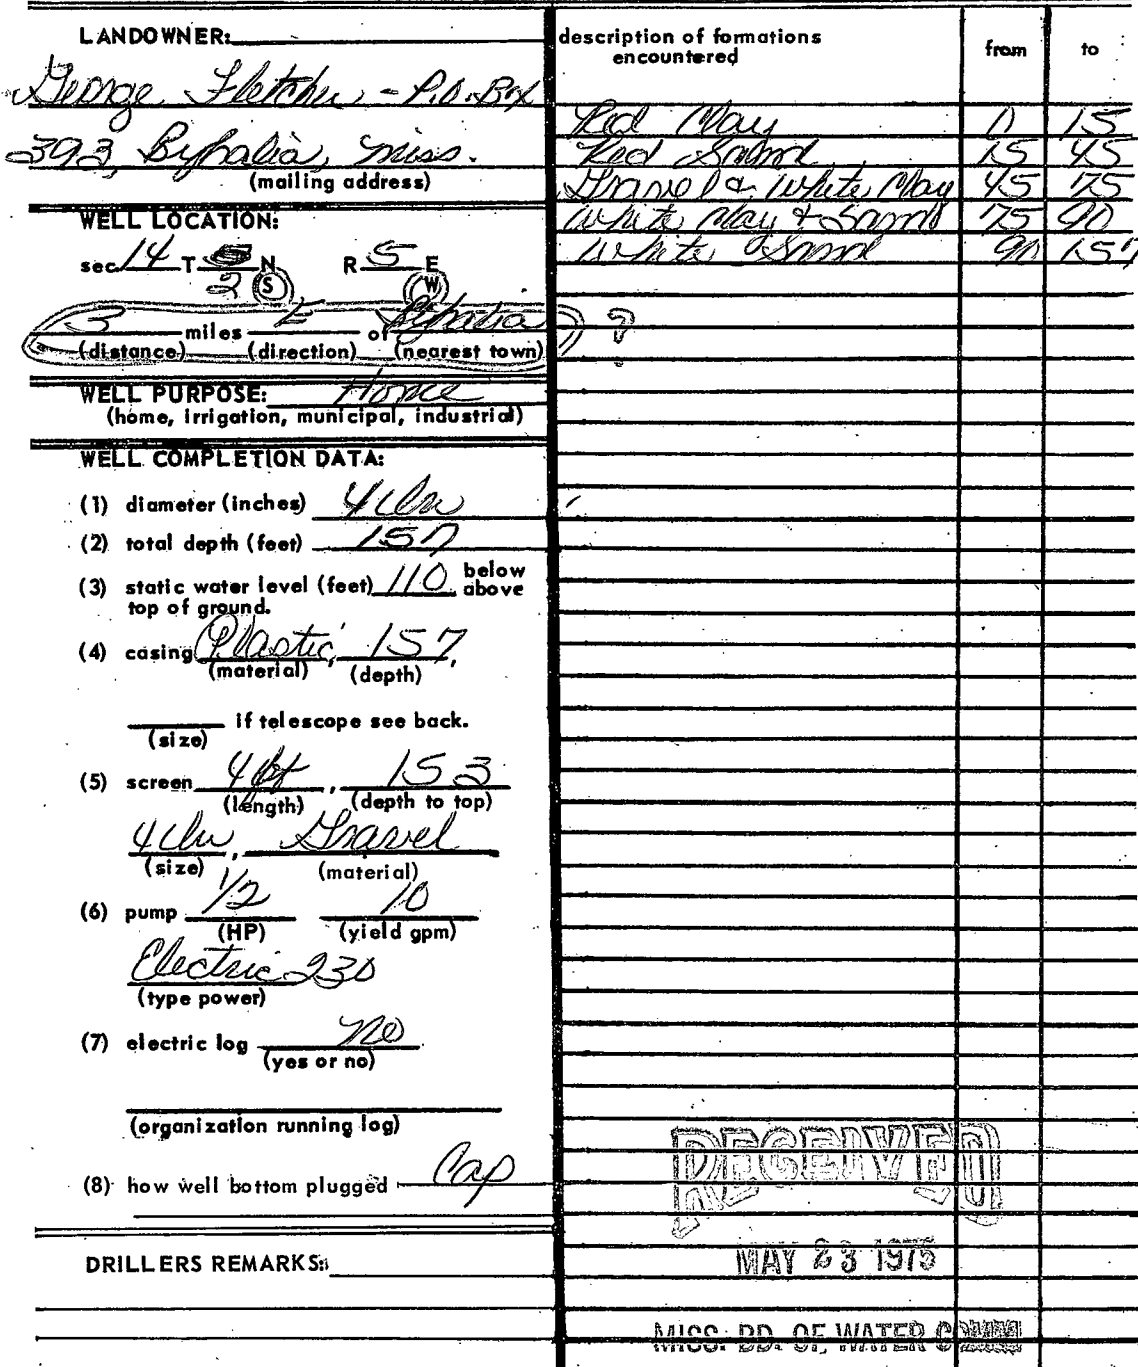 LANDOWNER:
George Fletcher - P.O. Box
393, Byhalia, Miss.
(mailing address)
WELL LOCATION:
sec 14 T N R 5 E
2 S W
3 miles E of Byhalia ?
(distance) (direction) (nearest town)
WELL PURPOSE: Home
(home, irrigation, municipal, industrial)
WELL COMPLETION DATA:
(1) diameter (inches) 4
(2) total depth (feet) 157
(3) static water level (feet) 110 below
above
top of ground.
(4) casing Plastic, 157,
(material) (depth)
if telescope see back.
(size)
(5) screen 4 ft, 153
(length) (depth to top)
4, Gravel
(size) (material)
(6) pump 1/2 10
(HP) (yield gpm)
Electric 230
(type power)
(7) electric log no
(yes or no)
(organization running log)
(8) how well bottom plugged Cap
DRILLERS REMARKS:
description of formations
encountered
from to
Red Clay 0 15
Red Sand 15 45
Gravel & White Clay 45 75
White Clay + Sand 75 90
White Sand 90 157
RECEIVED
MAY 23 1975
MISS. BD. OF WATER COMM